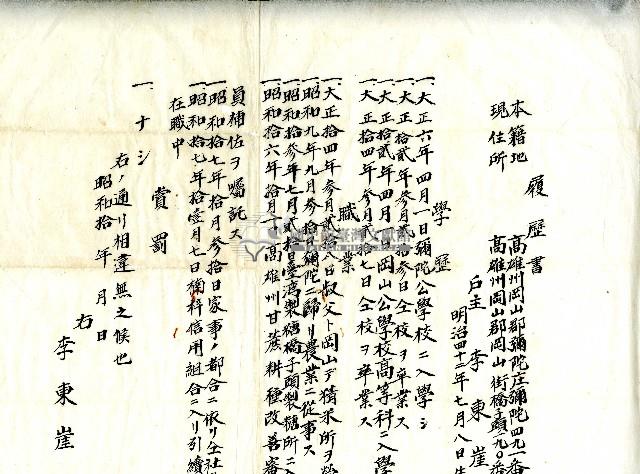 履歴書
本籍地 高雄州岡山郡彌陀庄彌陀四九一番
現住所 高雄州岡山郡岡山街橋子頭二九〇番
戸主 李東崖
明治四十二年七月八日生
學歴
一、大正六年四月一日彌陀公學校ニ入學シ
一、大正拾貳年參月貳拾參日仝校ヲ卒業ス
一、大正拾貳年四月 日岡山公學校高等科ニ入學
一、大正拾四年參月貳拾七日仝校ヲ卒業ス
職業
一、大正拾四年參月貳拾八日叔父ト岡山デ精米所ヲ
一、昭和九年九月參拾 彌陀ニ歸リ農業ニ從事ス
一、昭和拾參年七月貳拾 日臺灣製糖橋子頭製糖所ニ入
一、昭和拾六年拾月一 高雄州甘蔗耕種改善
員補佐ヲ囑託ス
一、昭和拾七年拾月參拾日家事ノ都合ニ依リ仝社
一、昭和拾七年拾壹月七日楠梓信用組合ニ入リ引續
在職中
賞罰
一、ナシ
右ノ通リ相違無之候也
昭和拾 年 月 日
右 李東崖